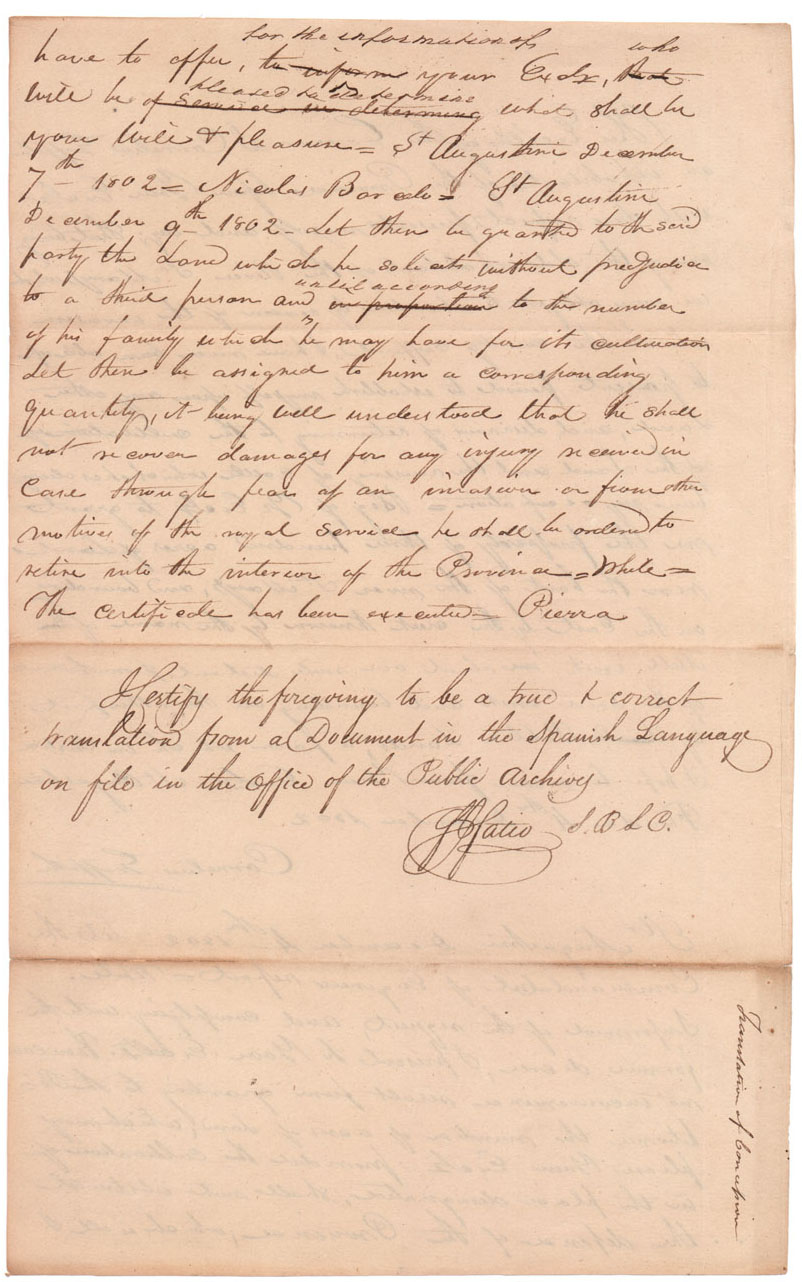 for the information of who
have to offer, to inform your Excly, that
pleased to determine
will be of service in determining what shall be
your Will & pleasure = St Augustine December
7th 1802 = Nicolas Barcelo = St Augustine
December 9th 1802 - Let there be granted to the said
party the Land which he solicits without prejudice
until according
to a third person and in proportion to the number
of his family which he may have for its cultivation
Let there be assigned to him a corresponding
quantity, it being well understood that he shall
not recover damages for any injury received in
Case through fear of an invasion or from other
motives of the royal Service he shall be ordered to
retire into the interior of the Province = White =
The certificate has been executed = Pierra
I Certify the foregoing to be a true & correct
translation from a Document in the Spanish Language
on file in the office of the Public Archives
Fatio S. B L C.
Translation of Concession